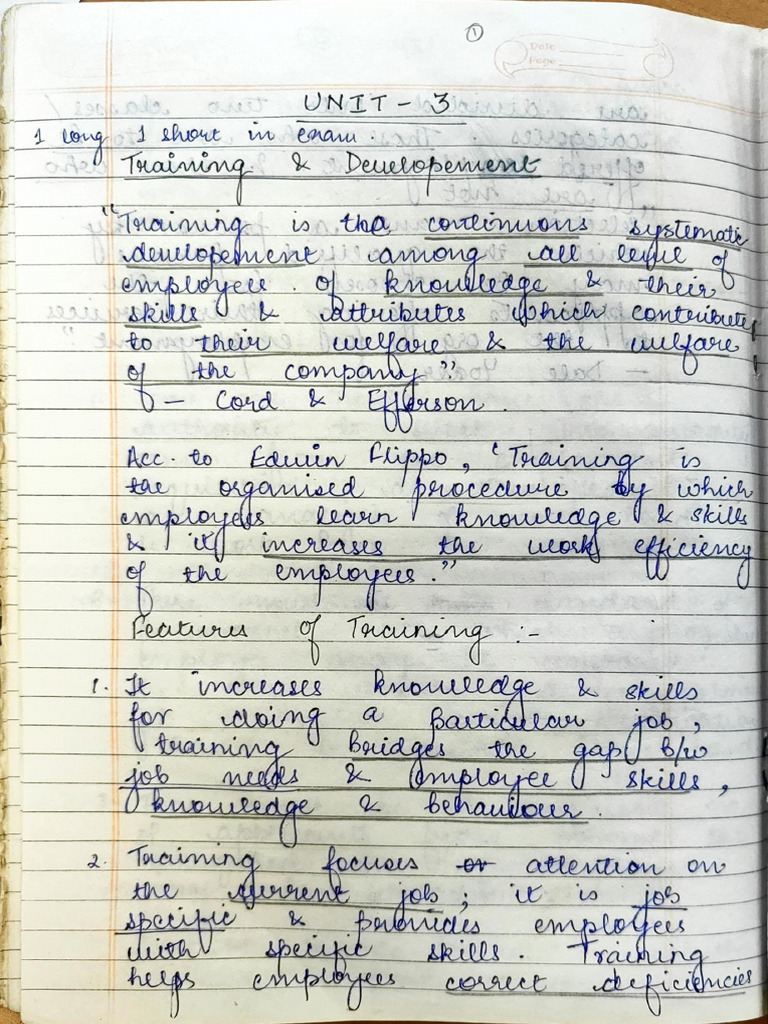 ①
Date
Page
UNIT - 3
1 long 1 short in exam.
Training & Developement
"Training is the continuous systematic
developement among all level of
employees. of knowledge & their
skills & attributes which contributes
to their welfare & the welfare
of the company."
- Cord & Efferson.
Acc. to Edwin Flippo, "Training is
the organised procedure by which
employees learn knowledge & skills
& it increases the work efficiency
of the employees."
Features of Training :-
1. It increases knowledge & skills
for doing a particular job,
training bridges the gap b/w
job needs & employee skills,
knowledge & behaviour.
2. Training focuses or attention on
the current job; it is job
specific & provides employees
with specific skills. Training
helps employees correct deficiencies